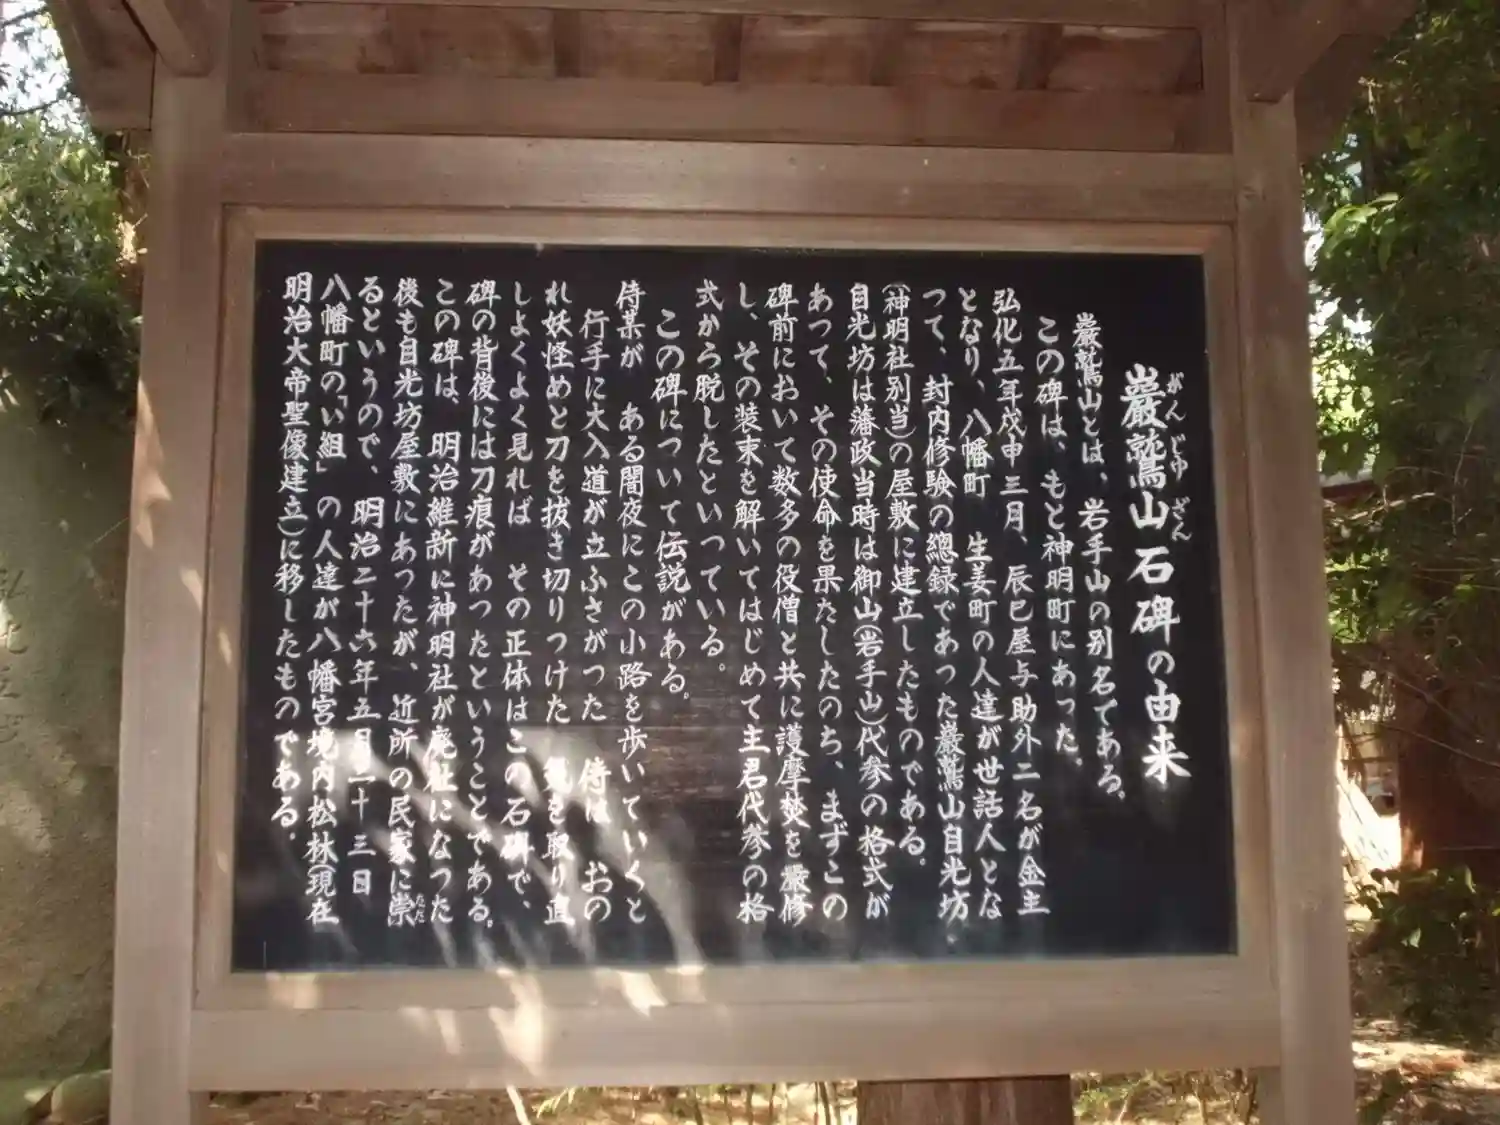 巖鷲山石碑の由来
がんじゅざん
巖鷲山とは、岩手山の別名である。
この碑は、もと神明町にあった。
弘化五年戊申三月、辰巳屋与助外二名が金主
となり、八幡町 生姜町の人達が世話人とな
つて、封内修験の總録であった巖鷲山自光坊
(神明社別当)の屋敷に建立したものである。
自光坊は藩政当時は御山(岩手山)代参の格式が
あつて、その使命を果たしたのち、まずこの
碑前において数多の役僧と共に護摩焚を厳修
し、その装束を解いてはじめて主君代参の格
式から脱したといつている。
この碑について伝説がある。
侍某が ある闇夜にこの小路を歩いていくと
行手に大入道が立ふさがつた 侍は おの
れ妖怪めと刀を抜き切りつけた 気を取り直
しよくよく見れば その正体はこの石碑で、
碑の背後には刀痕があつたということである。
この碑は、明治維新に神明社が廃社になつた
後も自光坊屋敷にあつたが、近所の民家に崇
たた
るというので、明治二十六年五月二十三日
八幡町の「い組」の人達が八幡宮境内松林(現在
明治大帝聖像建立)に移したものである。